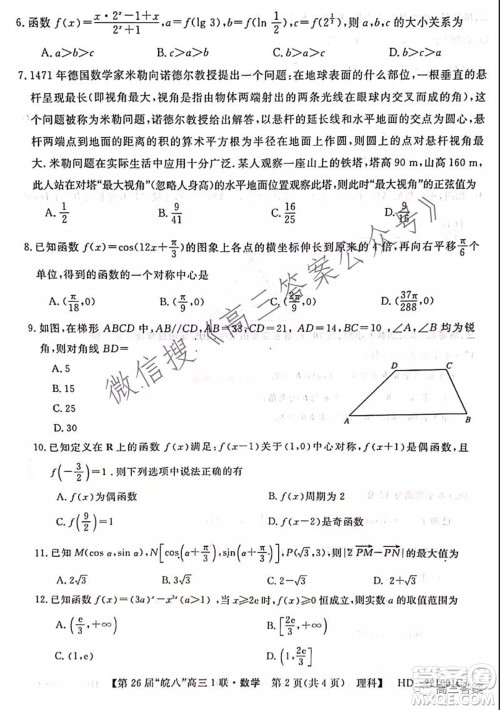 6.函数f(x)=(x·2ˣ-1+x)/(2ˣ+1),a=f(lg 3),b=f(ln 1/2),c=f(2^(1/3)),则a,b,c的大小关系为
A.a>b>c B.b>c>a C.c>a>b D.c>b>a
7.1471年德国数学家米勒向诺德尔教授提出一个问题:在地球表面的什么部位,一根垂直的悬
杆呈现最长(即视角最大,视角是指由物体两端射出的两条光线在眼球内交叉而成的角),这
个问题被称为米勒问题,诺德尔教授给出解答,以悬杆的延长线和水平地面的交点为圆心,
悬杆两端点到地面的距离的积的算术平方根为半径在地面上作圆,则圆上的点对悬杆视角最
大.米勒问题在实际生活中应用十分广泛.某人观察一座山上的铁塔,塔高90 m,山高160 m,
此人站在对塔“最大视角”(忽略人身高)的水平地面位置观察此塔,则此时“最大视角”的正弦值为
A.1/2 B.9/41 C.16/25 D.9/16
8.已知函数f(x)=cos(12x+π/3)的图象上各点的横坐标伸长到原来的
个单位,得到的函数的一个对称中心是
A.(π/18,0) D.(37π/288,0)
9.如图,在梯形ABCD中,AB//CD,AB=33,CD=21,AD=14,BC=10,若∠A,∠B均为锐
角,则对角线BD=
A.5
B.15
C.25
D.30
D C
A B
10.已知定义在R上的函数f(x)满足:f(x-1)关于(1,0)中心对称,f(x+1)是偶函数,且
f(-3/2)=1,则下列选项中说法正确的有
A.f(x)为偶函数 B.f(x)周期为2
C.f(9/2)=1 D.f(x-2)是奇函数
11.已知M(cos α,sin α),N[cos(α+π/3),sin(α+π/3)],P(√3,√3),则|2PM-PN|的最大值为
A.2√3 B.√3 C.3√3 D.4√3
12.已知函数f(x)=(3a)ˣ-x³ᵃ(a>1),当x≥2e时,f(x)≥0恒成立,则实数a的取值范围为
【第26届“皖八”高三1联·数学 第2页(共4页) 理科】 HD
微信搜《高三答案公众号》
高三答案